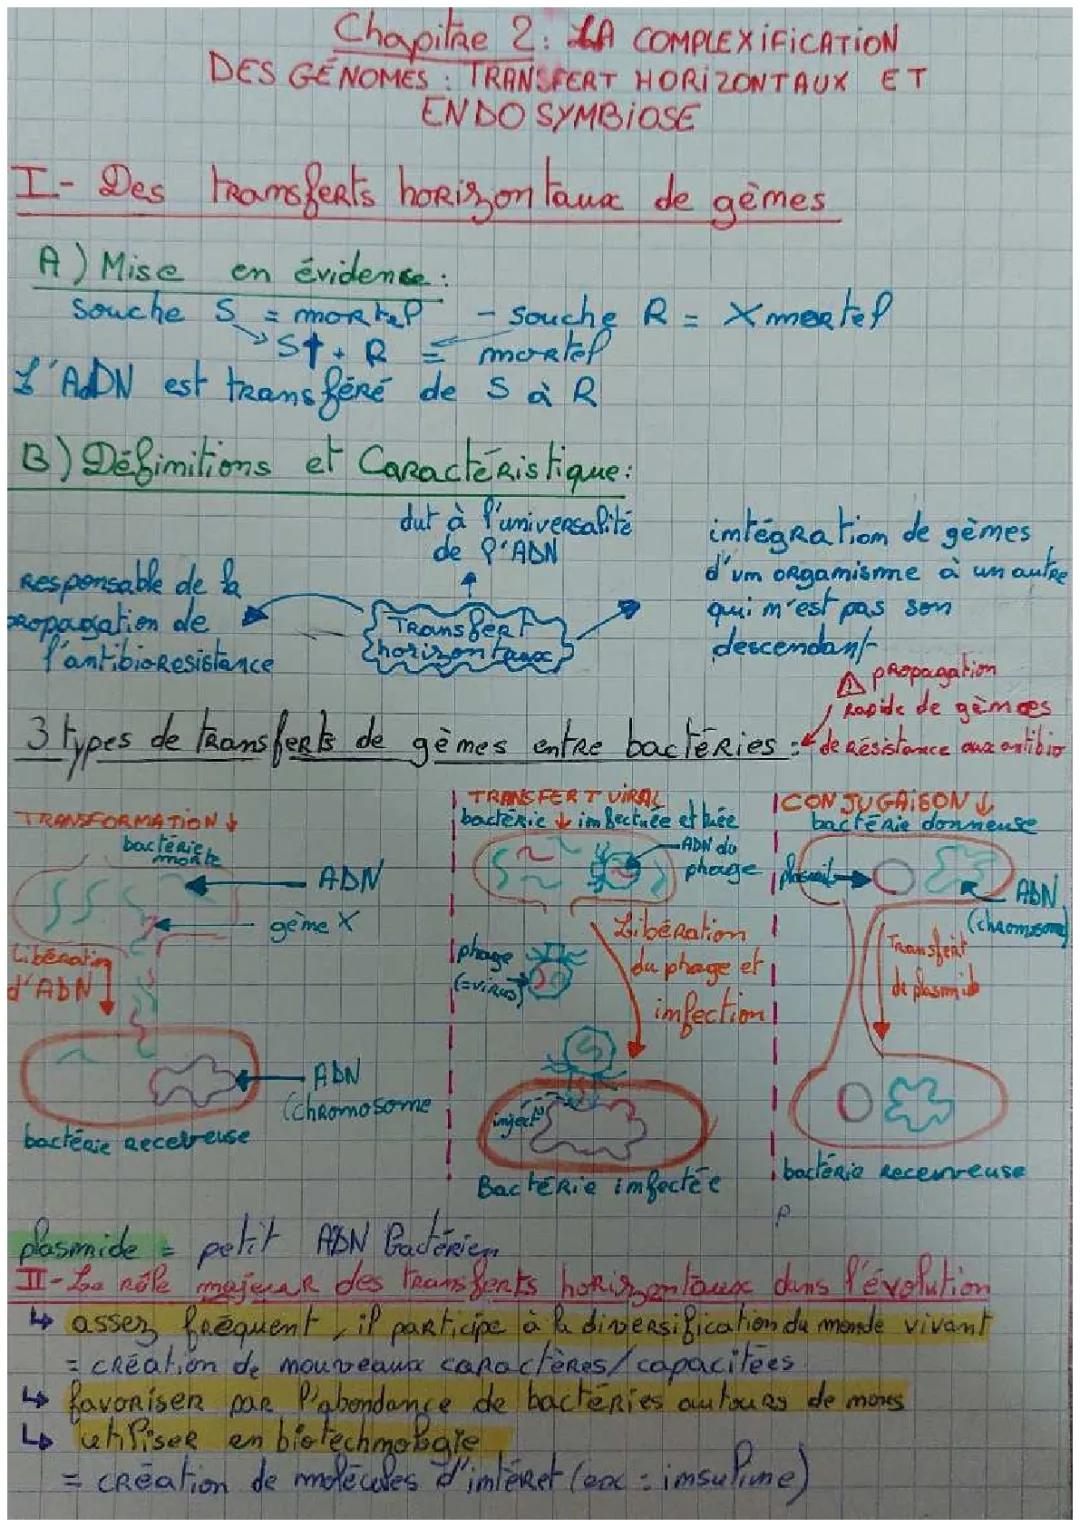 Chapitre 2: LA COMPLEXIFICATION
DES GÉNOMES : TRANSFERT HORIZONTAUX ET
ENDOSYMBIOSE
I- Des transferts horizontaux de gènes
A) Mise en évidence :
Souche S = mortel - souche R = X mortel
S† + R = mortel
L'ADN est transféré de S à R
B) Définitions et Caractéristique :
dut à l'universalité
de l'ADN
intégration de gènes
d'un organisme à un autre
qui n'est pas son
descendant
Responsable de la
propagation de
l'antibiorésistance
Transfert
horizontaux
⚠ propagation
rapide de gènes
de résistance aux antibio
3 types de transferts de gènes entre bactéries :
TRANSFORMATION ↓
bactérie
morte
ADN
gène X
Libération
d'ADN
ADN
(chromosome
bactérie receveuse
TRANSFERT VIRAL
bactérie ↓ infectuée et tuée
ADN du
phage
Libération
du phage et
infection
phage
(=virus)
inject°
Bactérie infectée
CONJUGAISON ↓
bactérie donneuse
plasmid
ADN
(chromosome)
Transfert
de plasmid
bactérie receveuse
plasmide = petit ADN Bactérien
II- Le rôle majeur des transferts horizontaux dans l'évolution
↳ assez fréquent, il participe à la diversification du monde vivant
= création de nouveaux caractères/capacitées
↳ favoriser par l'abondance de bactéries autours de nous
↳ utiliser en biotechnologie
= création de molécules d'intéret (ex : insuline)